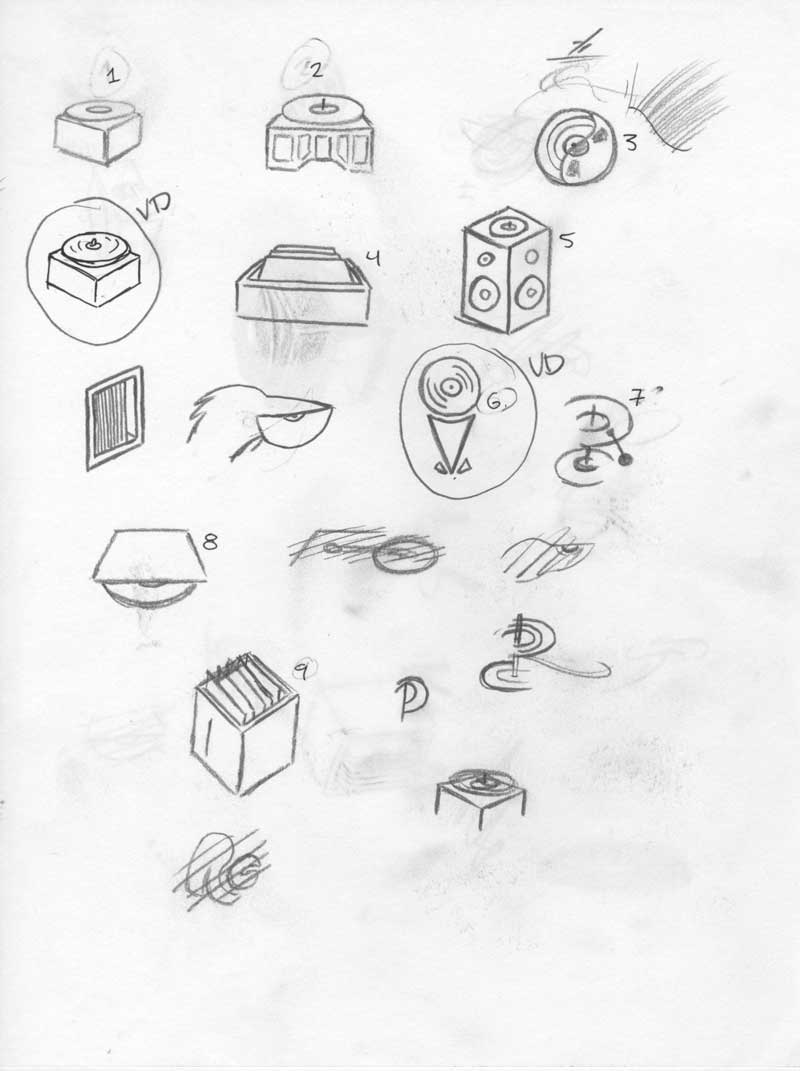 1
2
3
VD
4
5
VD
6
7
8
9
P